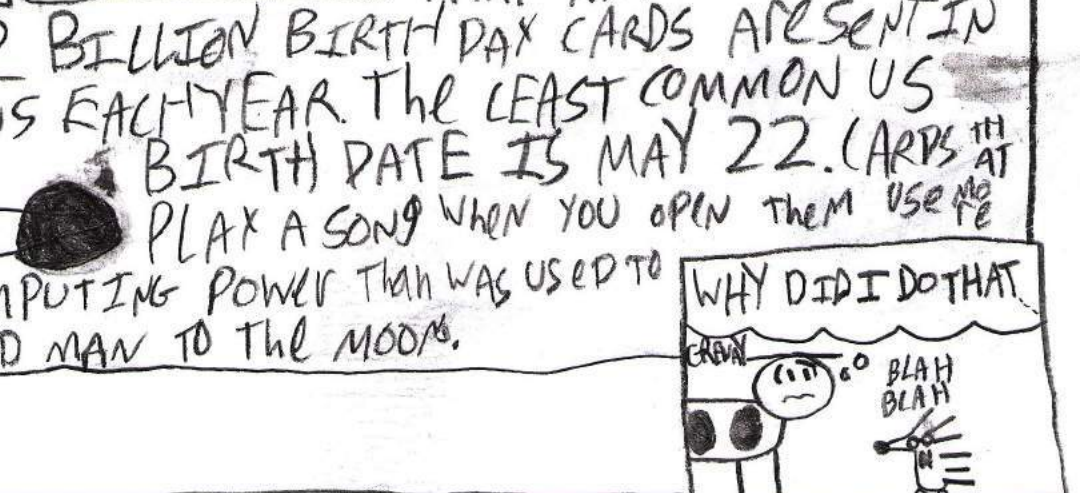 BILLION BIRTHDAY CARDS ARE SENT IN
EACH YEAR. The LEAST COMMON US
BIRTH DATE IS MAY 22. CARDS THAT
PLAY A SONG WHEN YOU OPEN THEM USE MORE
PUTING POWER THAN WAS USED TO
MAN TO The MOON.
WHY DID I DO THAT
BLAH
BLAH